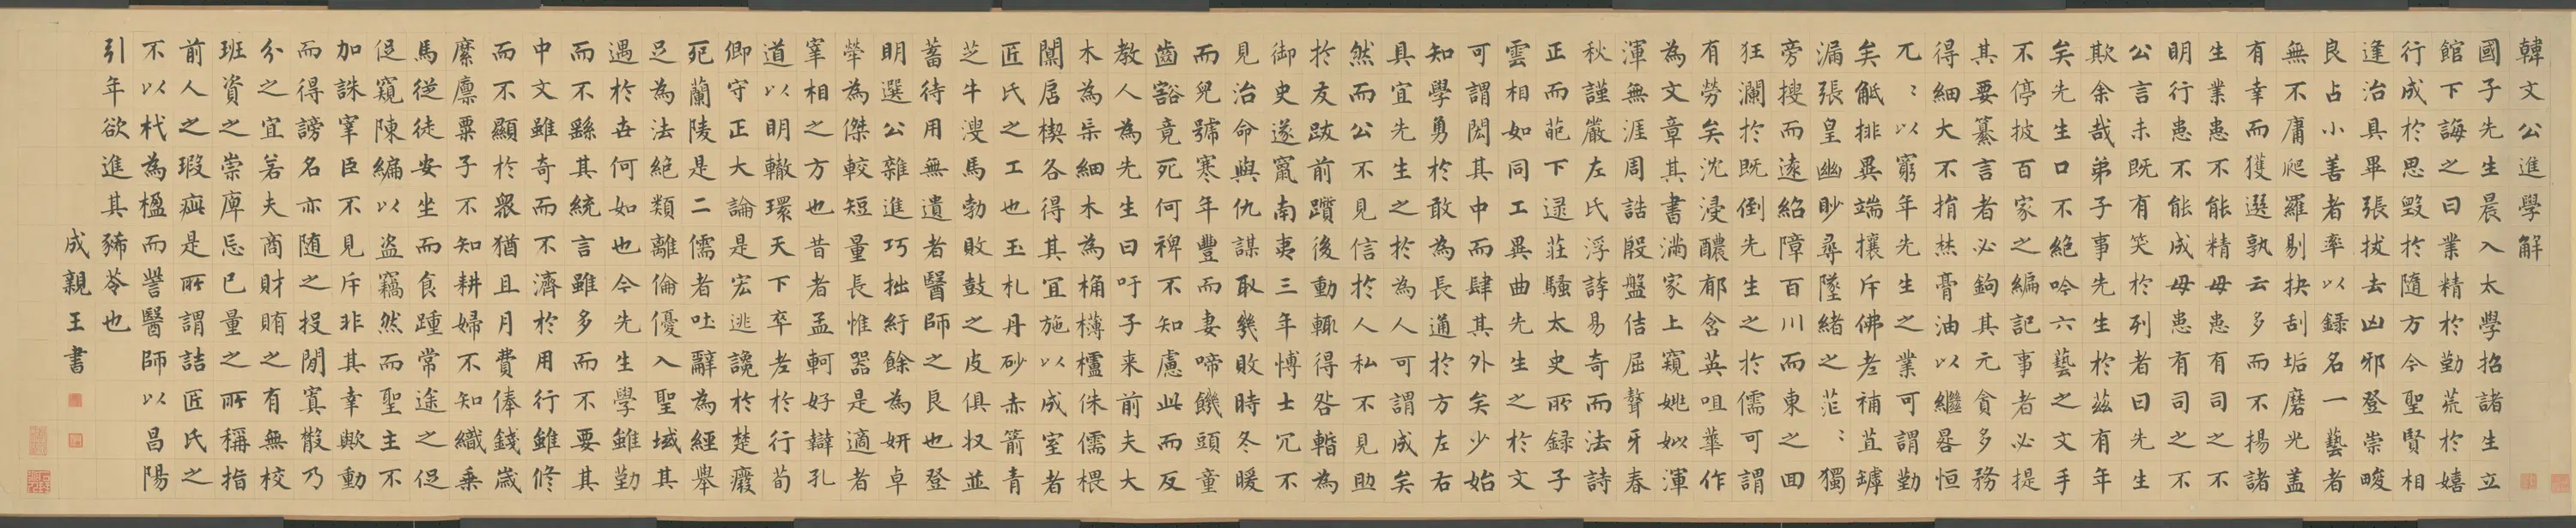 韓文公進學解
國子先生晨入太學招諸生立
館下誨之曰業精於勤荒於嬉
行成於思毀於隨方今聖賢相
逢治具畢張拔去凶邪登崇畯
良占小善者率以録名一藝者
無不庸爬羅剔抉刮垢磨光蓋
有幸而獲選孰云多而不揚諸
生業患不能精毋患有司之不
明行患不能成毋患有司之不
公言未既有笑於列者曰先生
欺余哉弟子事先生於茲有年
矣先生口不絕吟六藝之文手
不停披百家之編記事者必提
其要纂言者必鉤其元貪多務
得細大不捐焚膏油以繼晷恒
兀〻以窮年先生之業可謂勤
矣觝排異端攘斥佛老補苴罅
漏張皇幽眇尋墜緒之茫〻獨
旁搜而遠紹障百川而東之回
狂瀾於既倒先生之於儒可謂
有勞矣沈浸醲郁含英咀華作
為文章其書滿家上窺姚姒渾
渾無涯周誥殷盤佶屈聱牙春
秋謹嚴左氏浮誇易奇而法詩
正而葩下逮莊騷太史所録子
雲相如同工異曲先生之於文
可謂閎其中而肆其外矣少始
知學勇於敢為長通於方左右
具宜先生之於為人可謂成矣
然而公不見信於人私不見助
於友跋前躓後動輒得咎暫為
御史遂竄南夷三年博士冗不
見治命與仇謀取幾敗時冬暖
而兒號寒年豐而妻啼饑頭童
齒豁竟死何裨不知慮此而反
教人為先生曰吁子来前夫大
木為杗細木為桷欂櫨侏儒椳
闑扂楔各得其宜施以成室者
匠氏之工也玉札丹砂赤箭青
芝牛溲馬勃敗鼓之皮俱收並
蓄待用無遺者醫師之良也登
明選公雜進巧拙紆餘為妍卓
犖為傑較短量長惟器是適者
宰相之方也昔者孟軻好辯孔
道以明轍環天下卒老於行荀
卿守正大論是宏逃讒於楚廢
死蘭陵是二儒者吐辭為經舉
足為法絕類離倫優入聖域其
遇於世何如也今先生學雖勤
而不繇其統言雖多而不要其
中文雖奇而不濟於用行雖修
而不顯於衆猶且月費俸錢歲
縻廪粟子不知耕婦不知織乘
馬從徒安坐而食踵常途之促
促窺陳編以盗竊然而聖主不
加誅宰臣不見斥非其幸歟動
而得謗名亦随之投閒寘散乃
分之宜若夫商財賄之有無校
班資之崇庳忘己量之所稱指
前人之瑕疵是所謂詰匠氏之
不以杙為楹而訾醫師以昌陽
引年欲進其豨苓也
成親王書